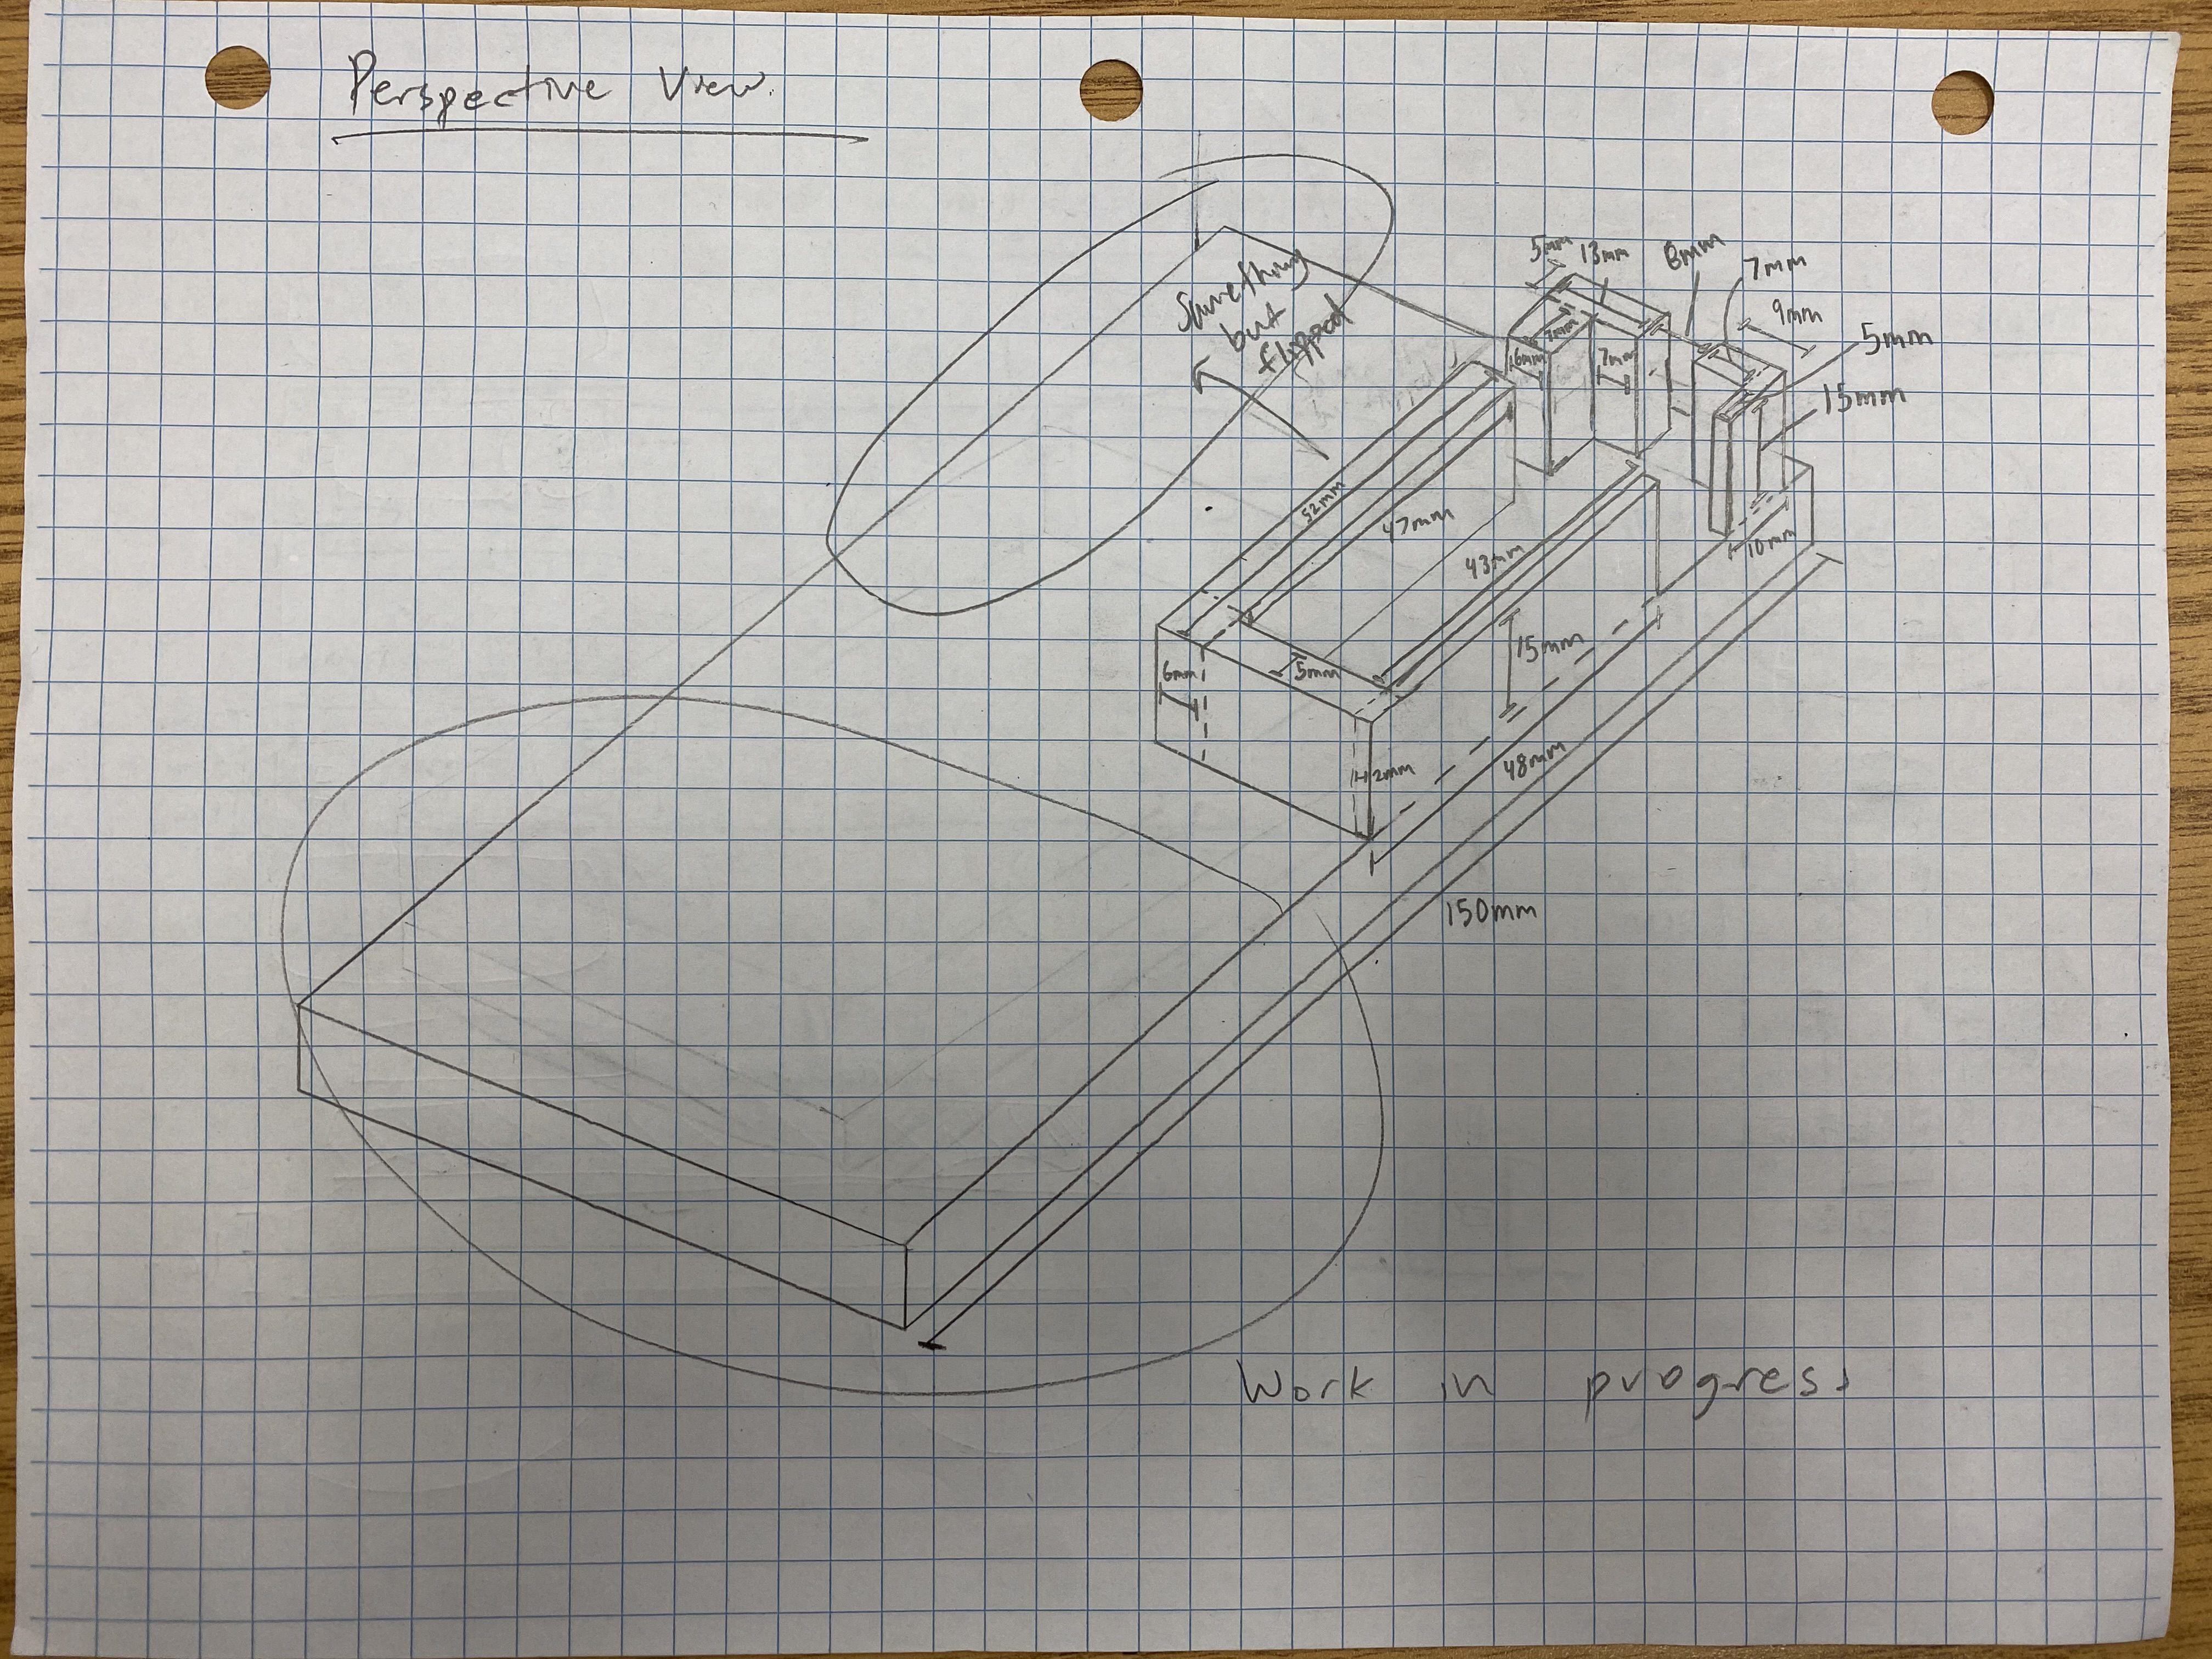 Perspective View.
Something
but
flipped
5mm
13mm
8mm
7mm
9mm
5mm
15mm
7mm
6mm
7mm
52mm
47mm
43mm
10mm
15mm
6mm
5mm
48mm
150mm
Work in progress